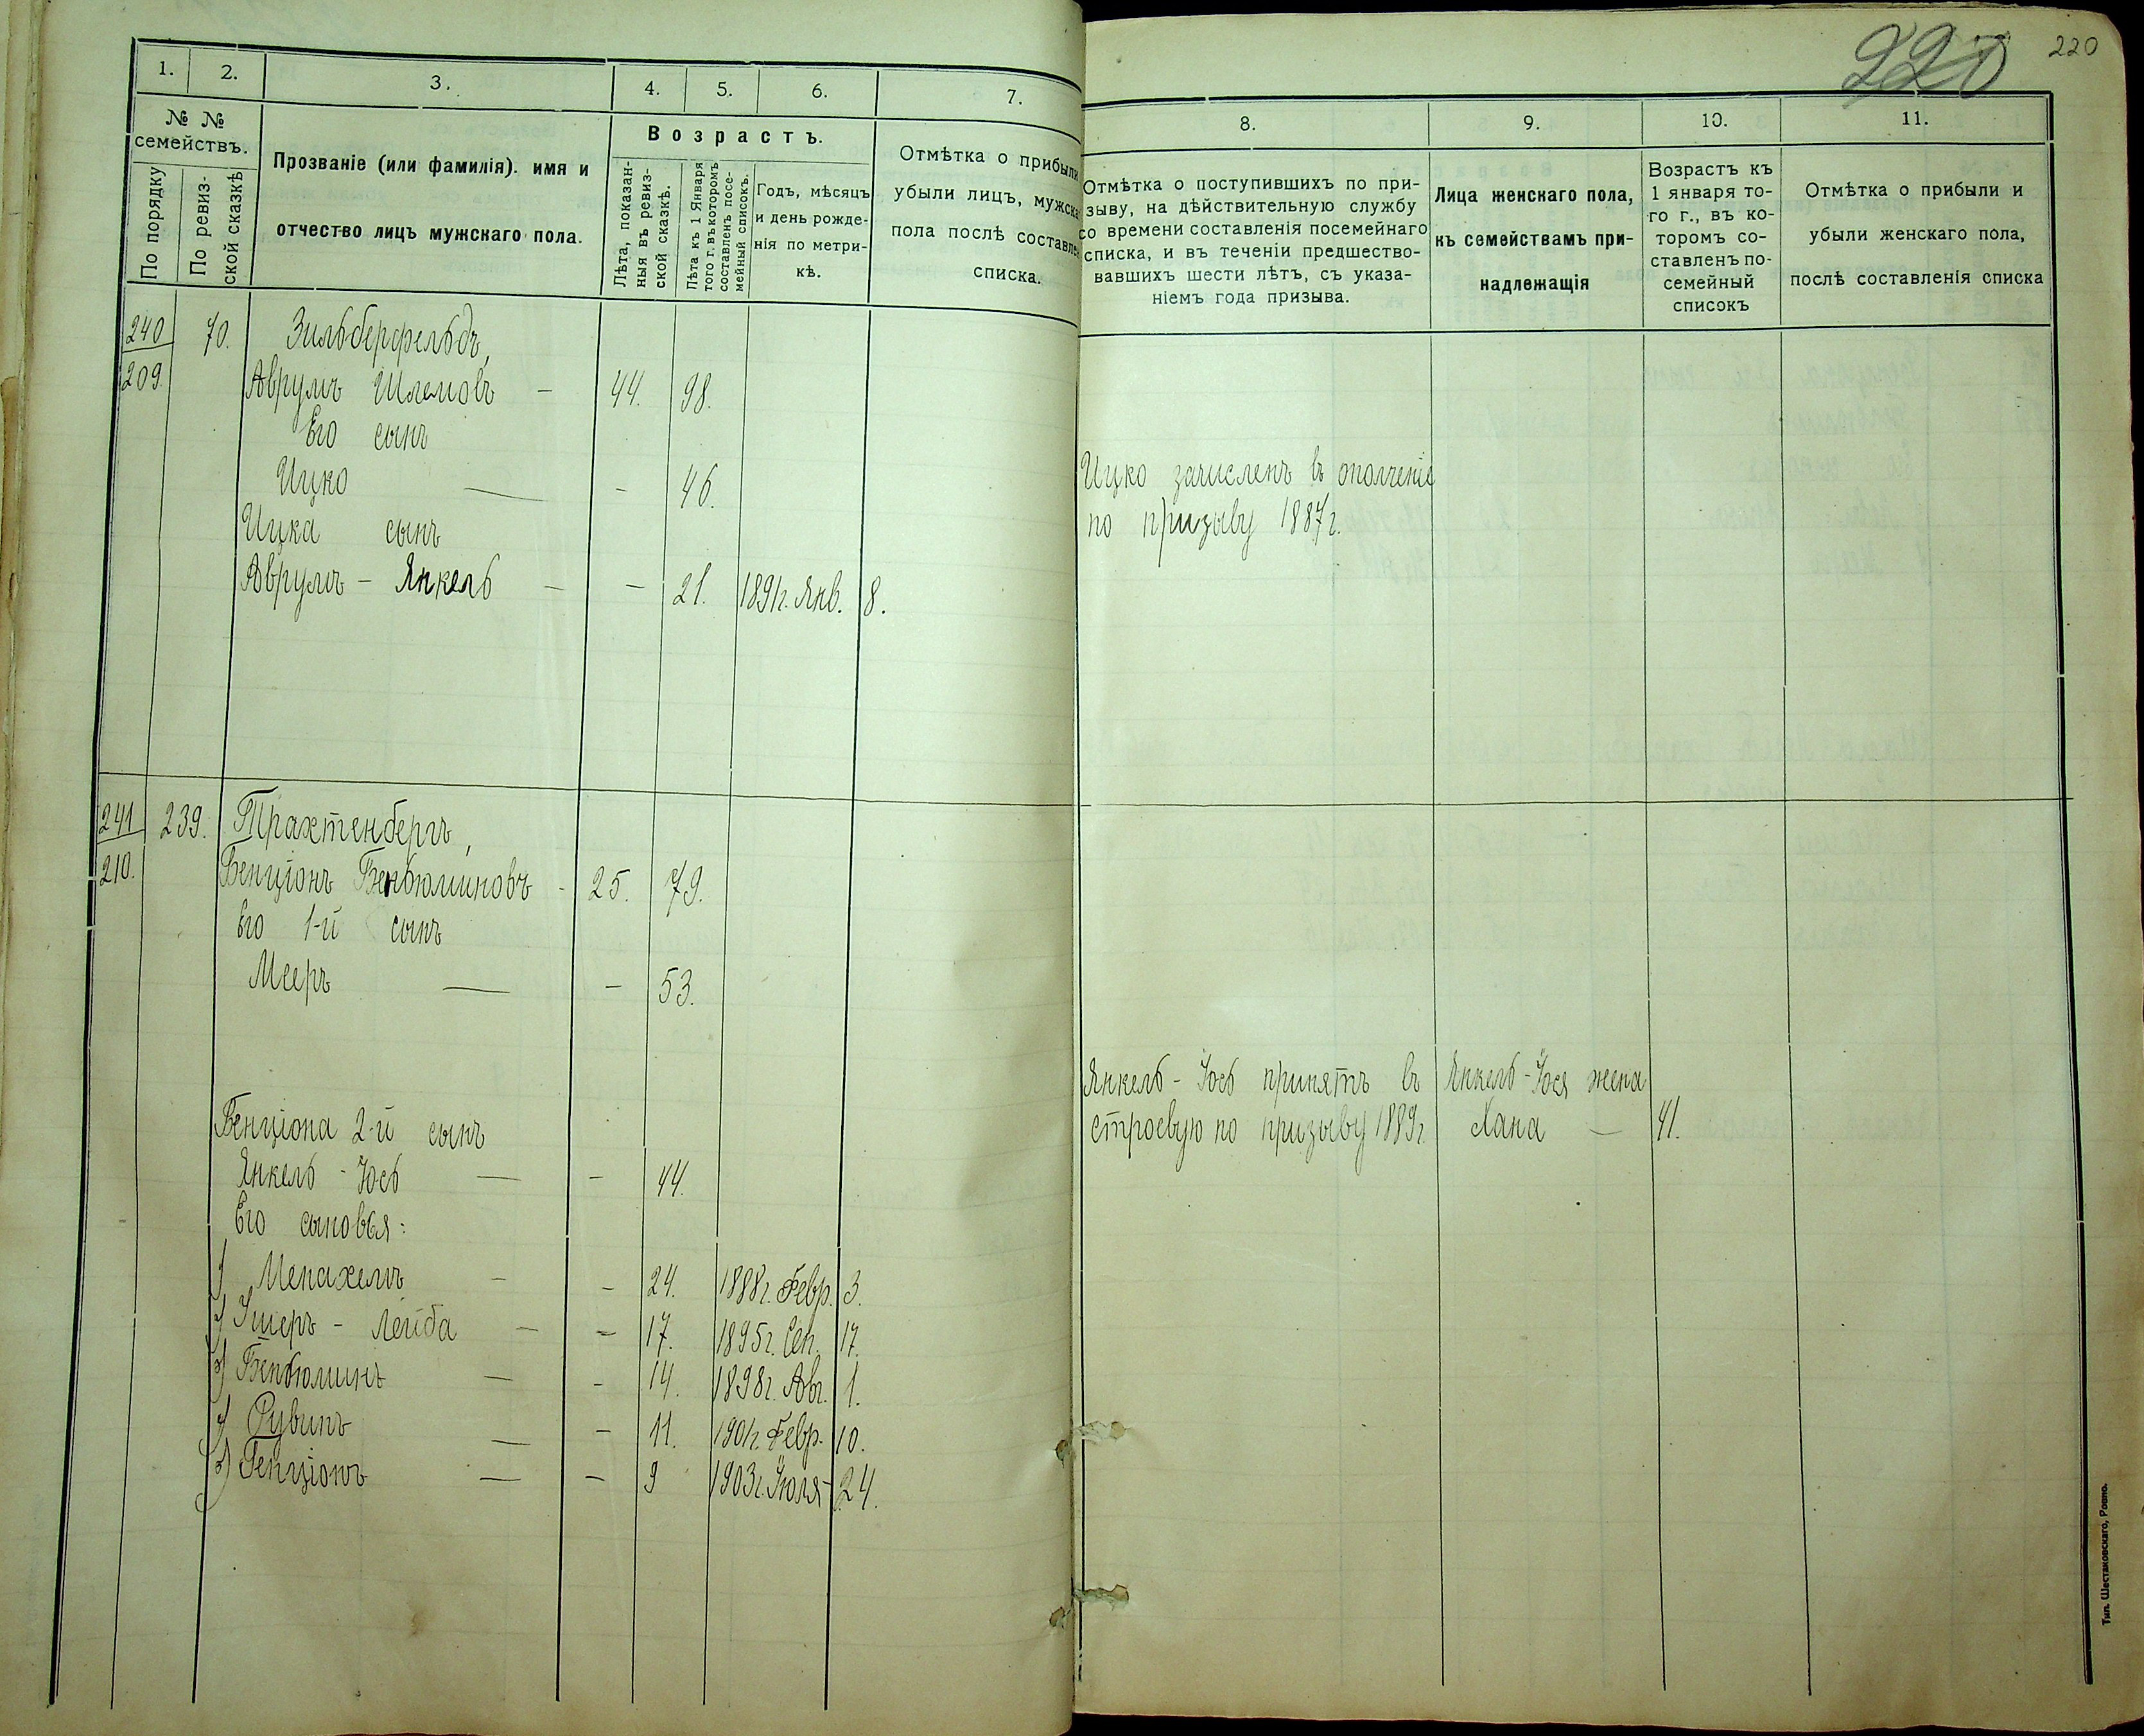 220
220
1. 2. 3. 4. 5. 6. 7.
№ № семействъ.
По порядку
По ревиз-
ской сказкѣ
Прозваніе (или фамилія). имя и
отчество лицъ мужскаго пола.
Возрастъ.
Лѣта, показан-
ныя въ ревиз-
ской сказкѣ.
Лѣта къ 1 Января
того г. въ которомъ
составленъ посе-
мейный списокъ.
Годъ, мѣсяцъ
и день рожде-
нія по метри-
кѣ.
Отмѣтка о прибыли
убыли лицъ, мужска
пола послѣ составлен
списка.
240 70. Зильберфельдъ,
209. Аврумъ Шлемовъ - 44. 98.
Его сынъ
Ицко — - 46.
Ицка сынъ
Аврумъ - Янкель - - 21. 1891г. Янв. 8.
241 239. Трахтенбергъ,
210. Бенціонъ Беньюминовъ - 25. 79.
Его 1-й сынъ
Мееръ — - 53.
Бенціона 2-й сынъ
Янкель - Іось — - 44.
Его сыновья:
1) Менахемъ - - 24. 1888г. Февр. 3.
2) Ушеръ - Лейба - - 17. 1895г. Сен. 17.
3) Беньюминъ — - 14. 1898г. Авг. 1.
4) Рувинъ — - 11. 1901г. Февр. 10.
5) Бенціонъ — - 9 1903г. Іюля 24.
8. 9. 10. 11.
Отмѣтка о поступившихъ по при-
зыву, на дѣйствительную службу
со времени составленія посемейнаго
списка, и въ теченіи предшество-
вавшихъ шести лѣтъ, съ указа-
ніемъ года призыва.
Лица женскаго пола,
къ семействамъ при-
надлежащія
Возрастъ къ
1 января то-
го г., въ ко-
торомъ со-
ставленъ по-
семейный
списокъ
Отмѣтка о прибыли и
убыли женскаго пола,
послѣ составленія списка
Ицко зачисленъ въ ополченіе
по призыву 1887г.
Янкель - Іось принятъ въ
строевую по призыву 1889г.
Янкель - Іося жена
Хана — 41.
Тип. Шестаковскаго, Ровно.